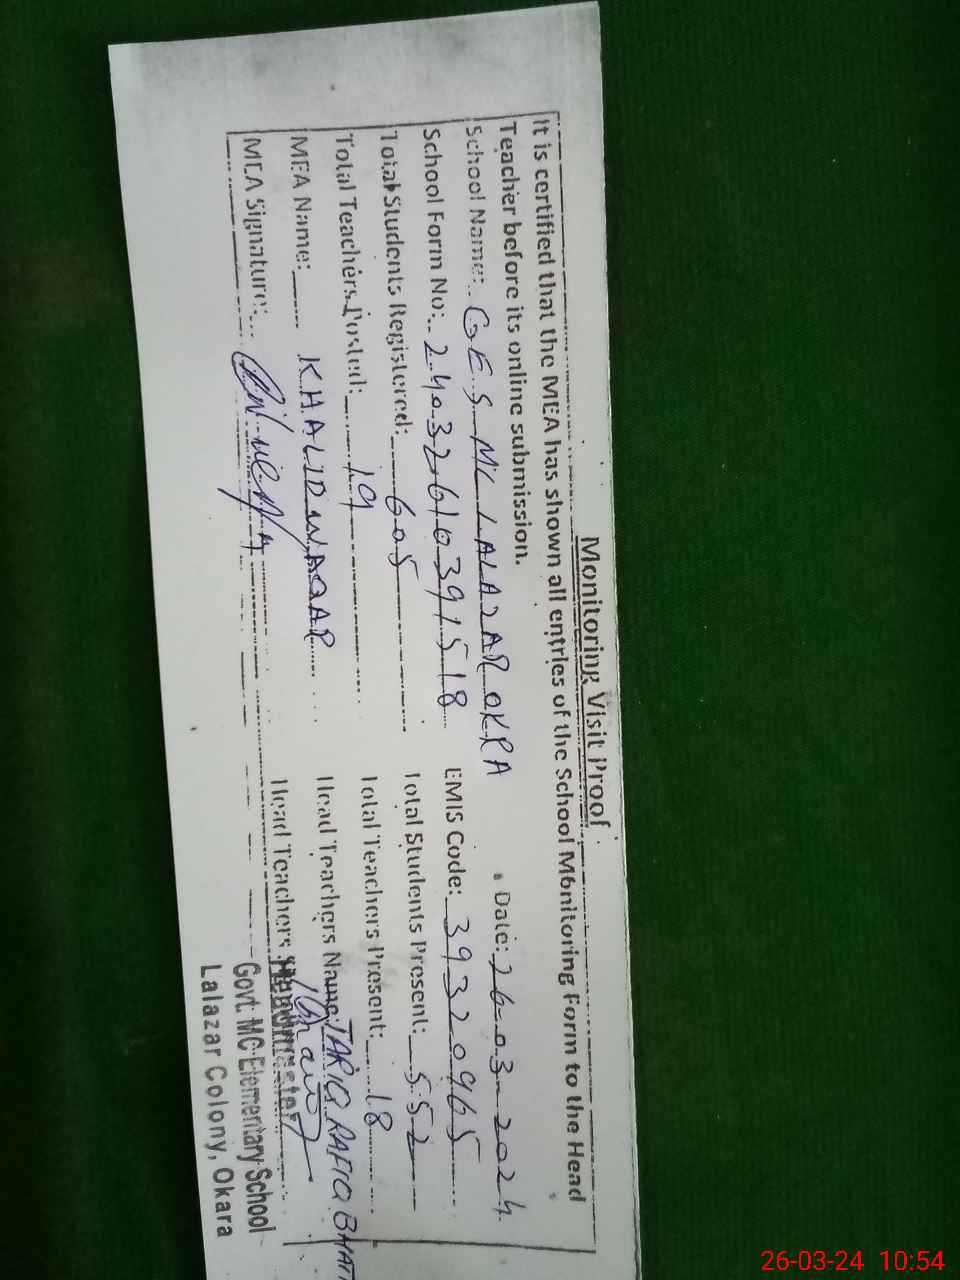 Monitoring Visit Proof
It is certified that the MEA has shown all entries of the School Monitoring Form to the Head
Teacher before its online submission.
Date: 26-03-2024
School Name: GES MC LALAZAR OKRA
School Form No: 24032610391518 EMIS Code: 39320965
Total Students Registered: 605 Total Students Present: 552
Total Teachers Posted: 19 Total Teachers Present: 18
MEA Name: KHALID WAQAR Head Teachers Name: TARIQ RAFIQ BHATTI
MEA Signature: Head Teachers
Headmaster
Govt: MC Elementary School
Lalazar Colony, Okara
26-03-24 10:54